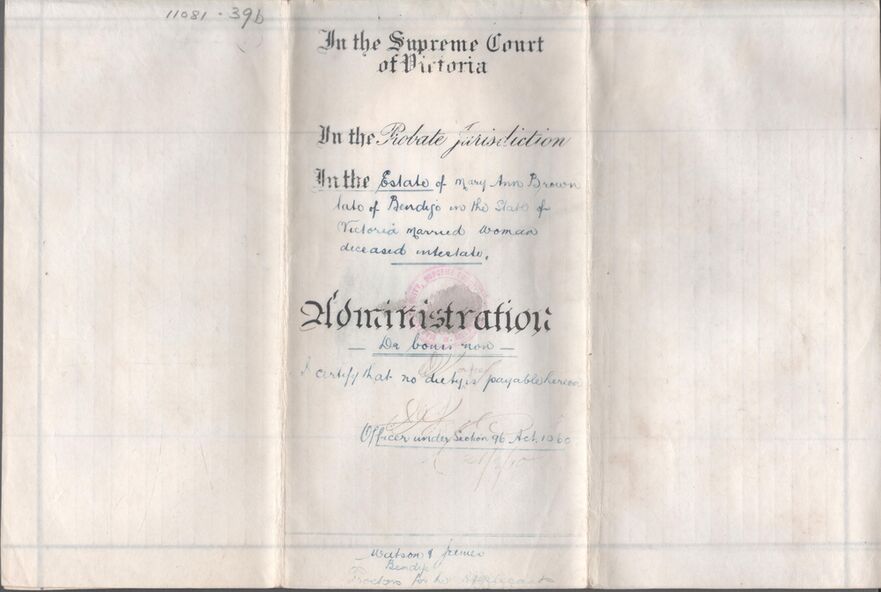 11081 - 39b
In the Supreme Court
of Victoria
In the Probate Jurisdiction
In the Estate of Mary Ann Brown
late of Bendigo in the State of
Victoria married woman
deceased intestate.
Administration
De bonis non
I certify that no duty is payable hereon
Officer under Section 96 Act 1060
Bendigo
Proctors for the Applicants